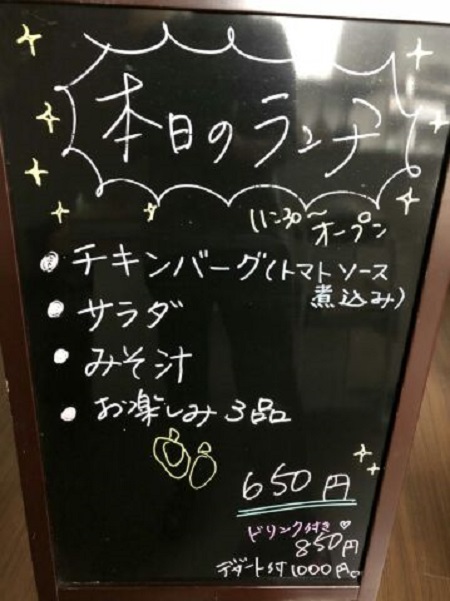 本日のランチ
11:30〜
オープン
・チキンバーグ(トマトソース
煮込み)
・サラダ
・みそ汁
・お楽しみ3品
650円
ドリンク付き♡
850円
デザート付1000円。